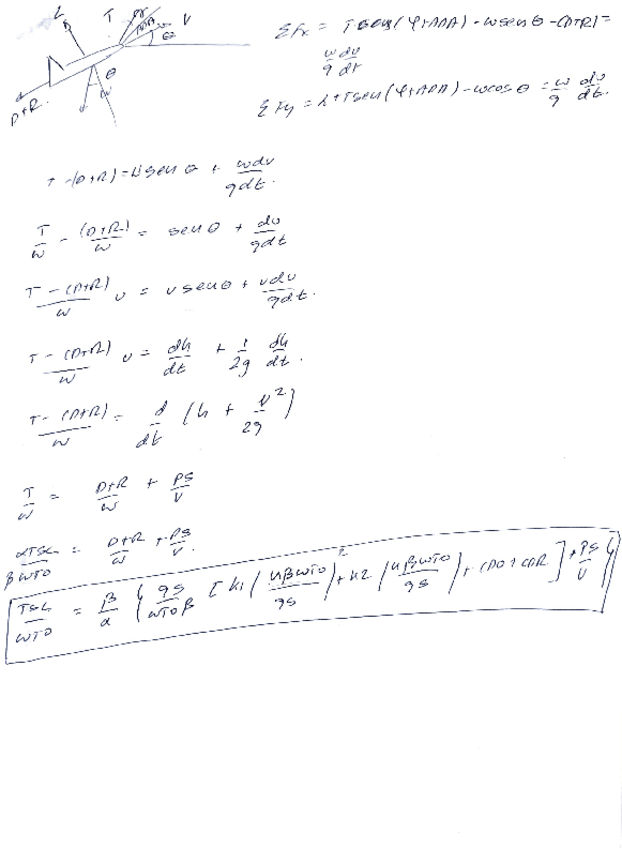 L T V
θ
W
D+R
ΣFx = T cos(φ+AOA) - wsenθ - (D+R) =
w/g dv/dt
ΣFy = L+Tsen(φ+AOA) - wcosθ = w/g dv/dt.
T - (D+R) = Wsenθ + wdv/gdt.
T/w - (D+R)/w = senθ + dv/gdt
T-(D+R)/w v = vsenθ + vdv/gdt.
T-(D+R)/w v = dh/dt + 1/2g dv/dt.
T-(D+R)/w = d/dt (h + v²/2g)
T/w = D+R/w + PS/V
αTSL/βWTO = D+R/w + PS/V.
TSL/WTO = β/α { qs/WTOβ [K1(nβWTO/qs)² + K2(nβWTO/qs) + CDO+CDR] + PS/V }